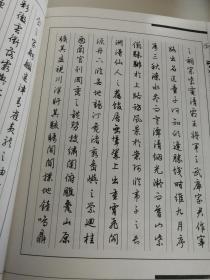 之詞宗紫電清霜王將軍之武庫家君作宰
路出名區童子何知躬逢勝餞時維九月序
屬三秋潦水盡而寒潭清煙光凝而暮山紫
儼驂騑於上路訪風景於崇阿臨帝子之長
洲得仙人之舊館層巒聳翠上出重霄飛閣
流丹下臨無地鶴汀鳧渚窮島嶼之縈迴桂
殿蘭宮列岡巒之體勢披繡闥俯雕甍山原
曠其盈視川澤盱其駭矚閭閻撲地鐘鳴鼎
之家舸艦迷津青雀黃龍之舳
彩徹雲衢落霞